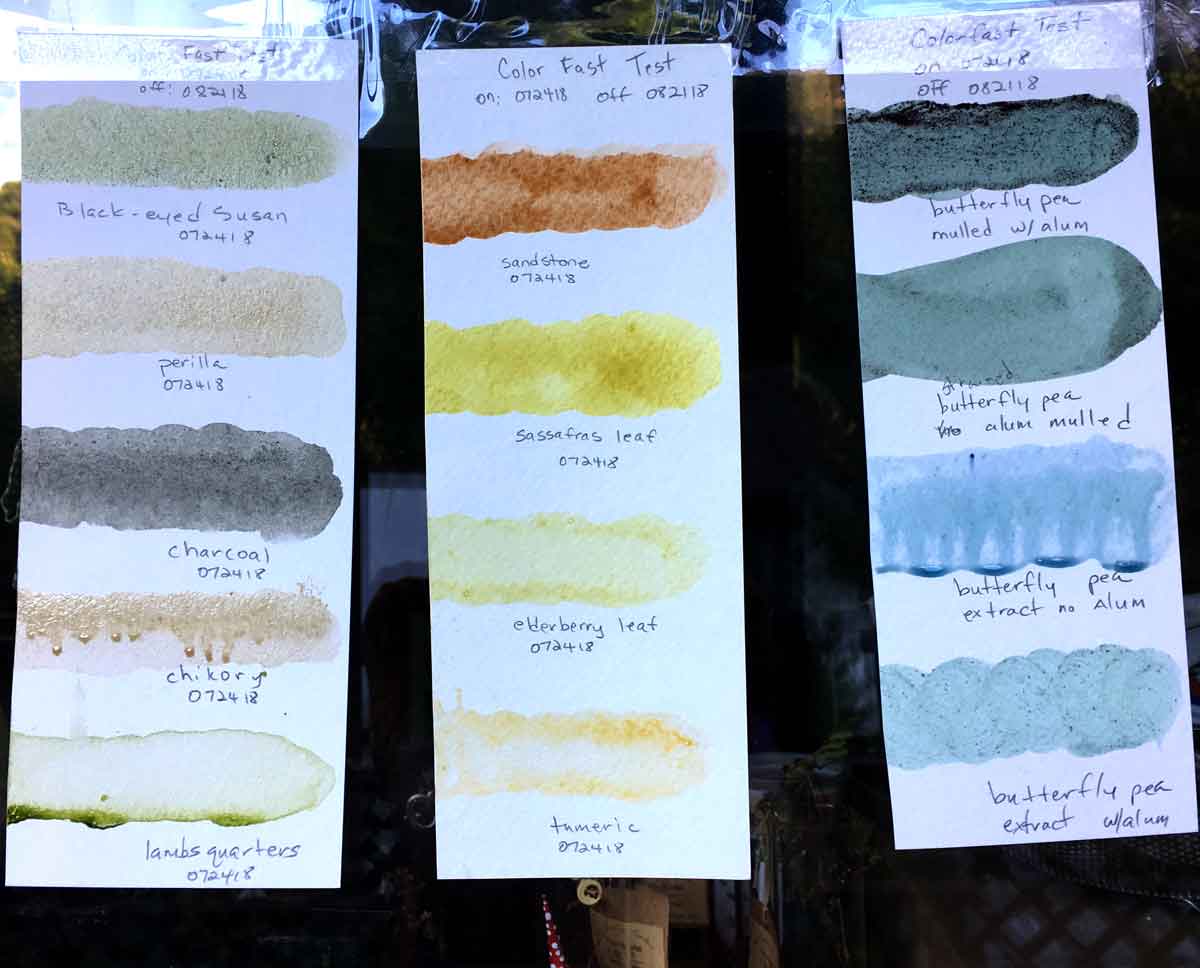 Fast Test
on: 072418
off: 082118
Black-eyed Susan
072418
perilla
072418
charcoal
072418
chikory
072418
lambsquarters
072418
Color Fast Test
on: 072418 off 082118
sandstone
072418
sassafras leaf
072418
elderberry leaf
072418
tumeric
072418
Colorfast Test
on 072418
off 082118
butterfly pea
mulled w/ alum
strained
butterfly pea
alum mulled
butterfly pea
extract no Alum
butterfly pea
extract w/alum